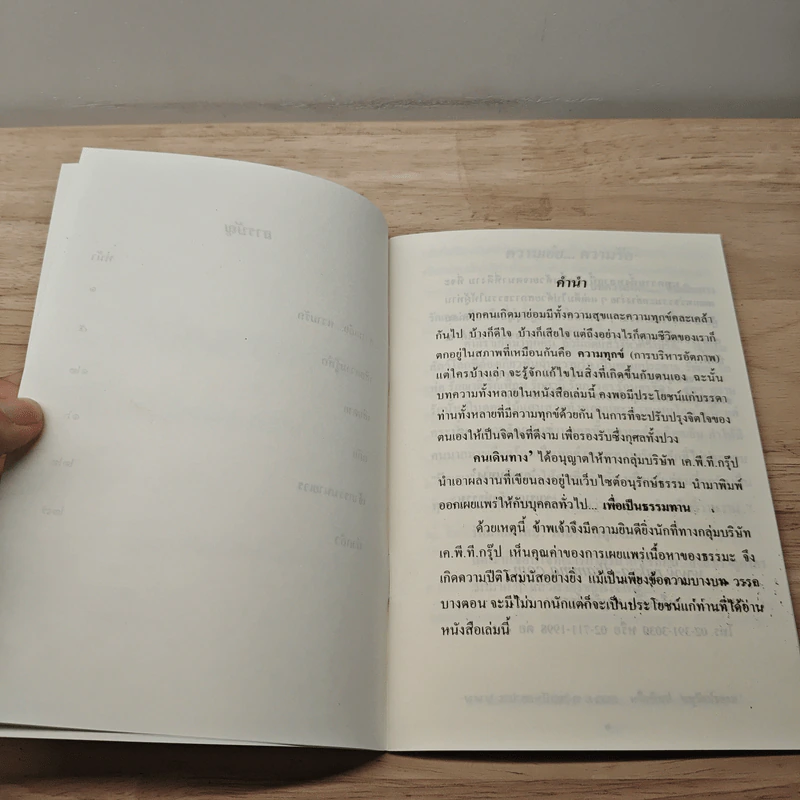 คำนำ
ทุกคนเกิดมาย่อมมีทั้งความสุขและความทุกข์คละเคล้า
กันไป บ้างก็ดีใจ บ้างก็เสียใจ แต่ถึงอย่างไรก็ตามชีวิตของเราก็
ตกอยู่ในสภาพที่เหมือนกันคือ ความทุกข์ (การบริหารอัตภาพ)
แต่ใครบ้างเล่า จะรู้จักแก้ไขในสิ่งที่เกิดขึ้นกับตนเอง ฉะนั้น
บทความทั้งหลายในหนังสือเล่มนี้ คงพอมีประโยชน์แก่บรรดา
ท่านทั้งหลายที่มีความทุกข์ด้วยกัน ในการที่จะปรับปรุงจิตใจของ
ตนเองให้เป็นจิตใจที่ดีงาม เพื่อรองรับซึ่งกุศลทั้งปวง
คนเดินทาง' ได้อนุญาตให้ทางกลุ่มบริษัท เค.พี.ที.กรุ๊ป
นำเอาผลงานที่เขียนลงอยู่ในเว็บไซต์อนุรักษ์ธรรม นำมาพิมพ์
ออกเผยแพร่ให้กับบุคคลทั่วไป... เพื่อเป็นธรรมทาน
ด้วยเหตุนี้ ข้าพเจ้าจึงมีความยินดียิ่งนักที่ทางกลุ่มบริษัท
เค.พี.ที.กรุ๊ป เห็นคุณค่าของการเผยแพร่เนื้อหาของธรรมะ จึง
เกิดความปีติโสมนัสอย่างยิ่ง แม้เป็นเพียงข้อความบางบท วรรค
บางตอน จะมีไม่มากนักแต่ก็จะเป็นประโยชน์แก่ท่านที่ได้อ่าน
หนังสือเล่มนี้